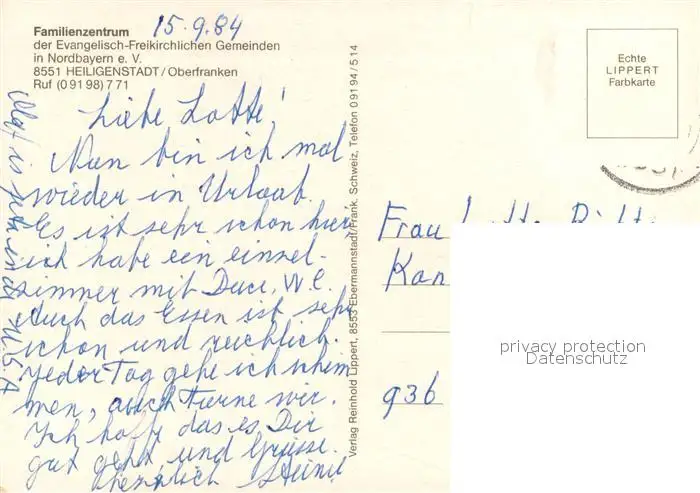 15.9.84
Familienzentrum
der Evangelisch-Freikirchlichen Gemeinden
in Nordbayern e. V.
8551 HEILIGENSTADT/Oberfranken
Ruf (0 91 98) 7 71
Liebe Lotte!
Nun bin ich mal
wieder in Urlaub.
Es ist sehr schon hier
ich habe ein einzel-
zimmer mit Duce, W.C.
Auch das Essen ist sehr
schon und reichlich.
Jeder Tag gehe ich schwim
men, auch turne wir.
Ich hoffe das es Dir
gut geht und Grüsse.
herzlich
Olaf is jetzt in der U.S.A
Verlag Reinhold Lippert, 8553 Ebermannstadt/Fränk. Schweiz, Telefon 0 91 94/5 14
Echte
LIPPERT
Farbkarte
Frau Lotte
Kan
936
privacy protection
Datenschutz